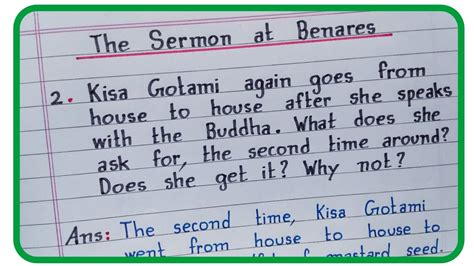 The Sermon at Benares
2. Kisa Gotami again goes from
house to house after she speaks
with the Buddha. What does she
ask for, the second time around?
Does she get it? Why not?
Ans: The second time, Kisa Gotami
went from house to house to
of mustard seed.